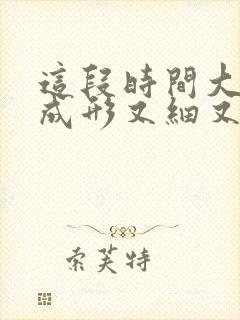 這段時間大
成形又細又
索芙特